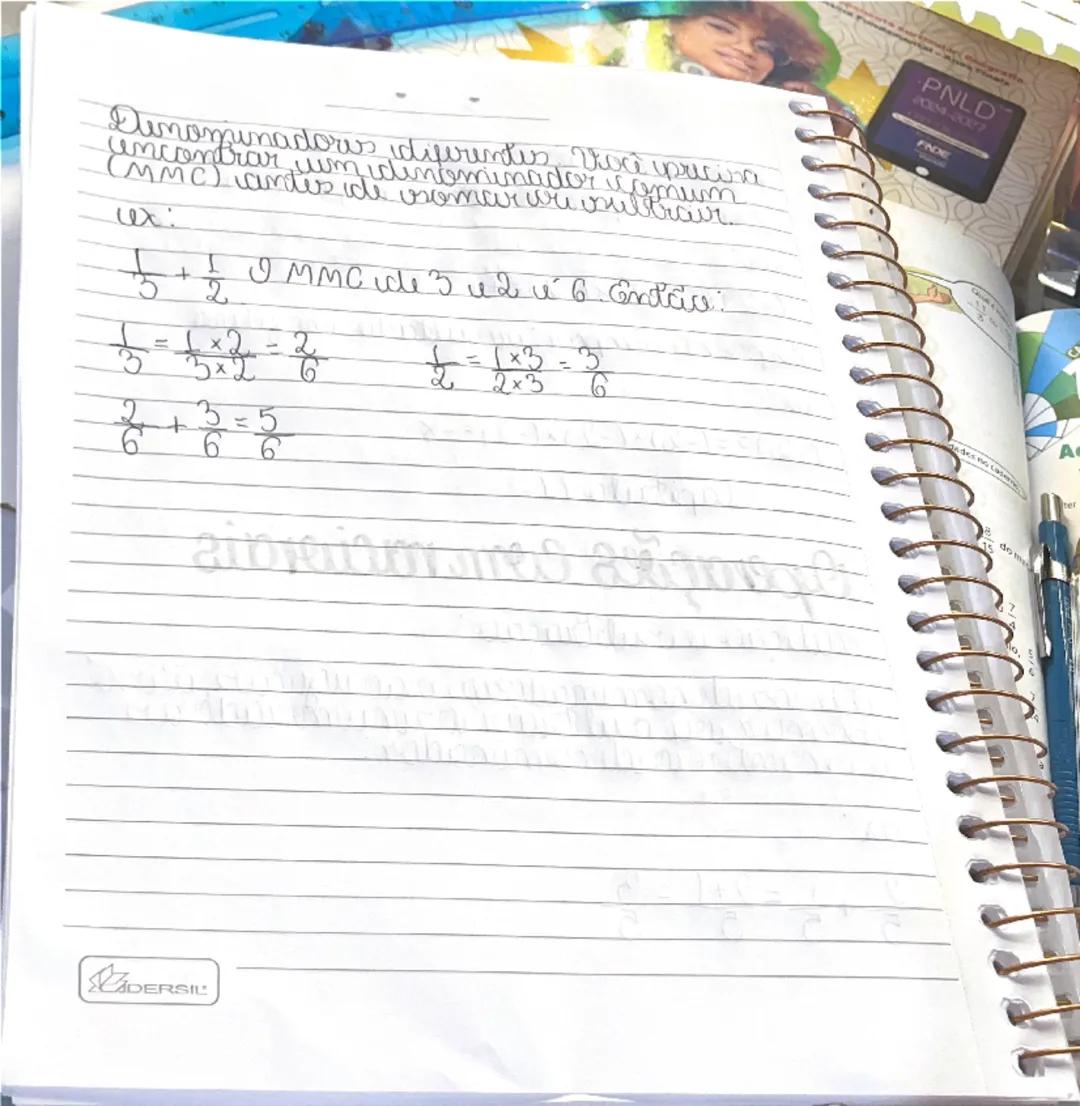 Denominadores diferentes. Você precisa
encontrar um denominador comum
(MMC) antes de somar ou subtrair.
ex:
1/3 + 1/2 O MMC de 3 e 2 é 6. Então:
1/3 = 1×2/3×2 = 2/6 1/2 = 1×3/2×3 = 3/6
2/6 + 3/6 = 5/6
DERSIL
PNLD
2024-2027
FNDE